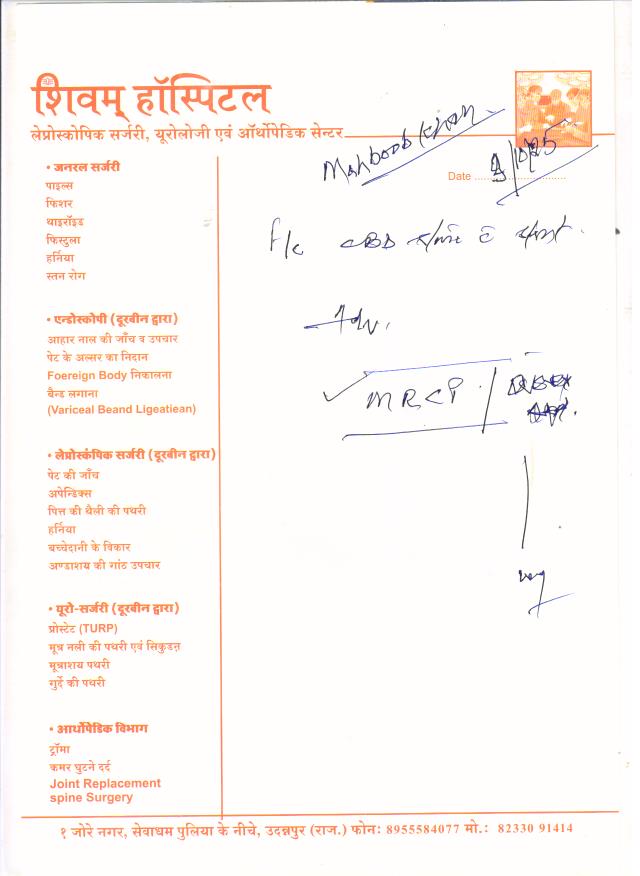 शिवम् हॉस्पिटल
लेप्रोस्कोपिक सर्जरी, यूरोलोजी एवं ऑर्थोपेडिक सेन्टर
Mahboob Khan
Date
• जनरल सर्जरी
पाइल्स
फिशर
थाइरॉइड
फिस्टुला
हर्निया
स्तन रोग
F/c CBD
Adv.
• एन्डोस्कोपी (दूरबीन द्वारा)
आहार नाल की जाँच व उपचार
पेट के अल्सर का निदान
Foereign Body निकालना
बैन्ड लगाना
(Variceal Beand Ligeatiean)
✓ MRCP /
• लेप्रोस्कंपिक सर्जरी (दूरबीन द्वारा)
पेट की जाँच
अपेन्डिक्स
पित्त की थैली की पथरी
हर्निया
बच्चेदानी के विकार
अण्डाशय की गांठ उपचार
• यूरो-सर्जरी (दूरबीन द्वारा)
प्रोस्टेट (TURP)
मूत्र नली की पथरी एवं सिकुडन
मूत्राशय पथरी
गुर्दे की पथरी
• आर्थोपेडिक विभाग
ट्रॉमा
कमर घुटने दर्द
Joint Replacement
spine Surgery
१ जोरे नगर, सेवाधम पुलिया के नीचे, उदन्नपुर (राज.) फोन: 8955584077 मो.: 82330 91414